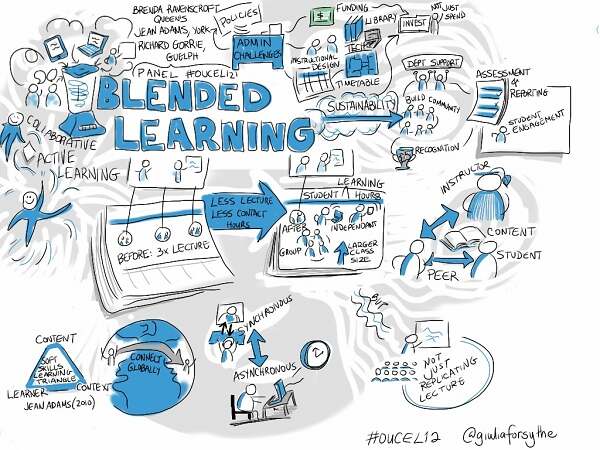 BRENDA RAVENSCROFT
QUEENS
JEAN ADAMS, YORK
RICHARD GORRIE,
GUELPH
PANEL #OUCEL12
POLICIES
ADMIN
CHALLENGES
$
FUNDING
LIBRARY
TECH
INSTRUCTIONAL
DESIGN
TIMETABLE
INVEST
NOT JUST
SPEND
BLENDED
LEARNING
SUSTAINABILITY
DEPT SUPPORT
BUILD COMMUNITY
RECOGNITION
ASSESSMENT
&
REPORTING
STUDENT
ENGAGEMENT
COLLABORATIVE
ACTIVE
LEARNING
BEFORE: 3x LECTURE
LESS LECTURE
LESS CONTACT
HOURS
LEARNING
STUDENT HOURS
AFTER
GROUP
INDEPENDANT
LARGER
CLASS
SIZE
INSTRUCTOR
CONTENT
STUDENT
PEER
CONTENT
SOFT
SKILLS
LEARNING
TRIANGLE
LEARNER
CONTEXT
JEAN ADAMS (2010)
CONNECT
GLOBALLY
SYNCHRONOUS
ASYNCHRONOUS
BUT
NOT
JUST
REPLICATING
LECTURE
#OUCEL12 @giuliaforsythe